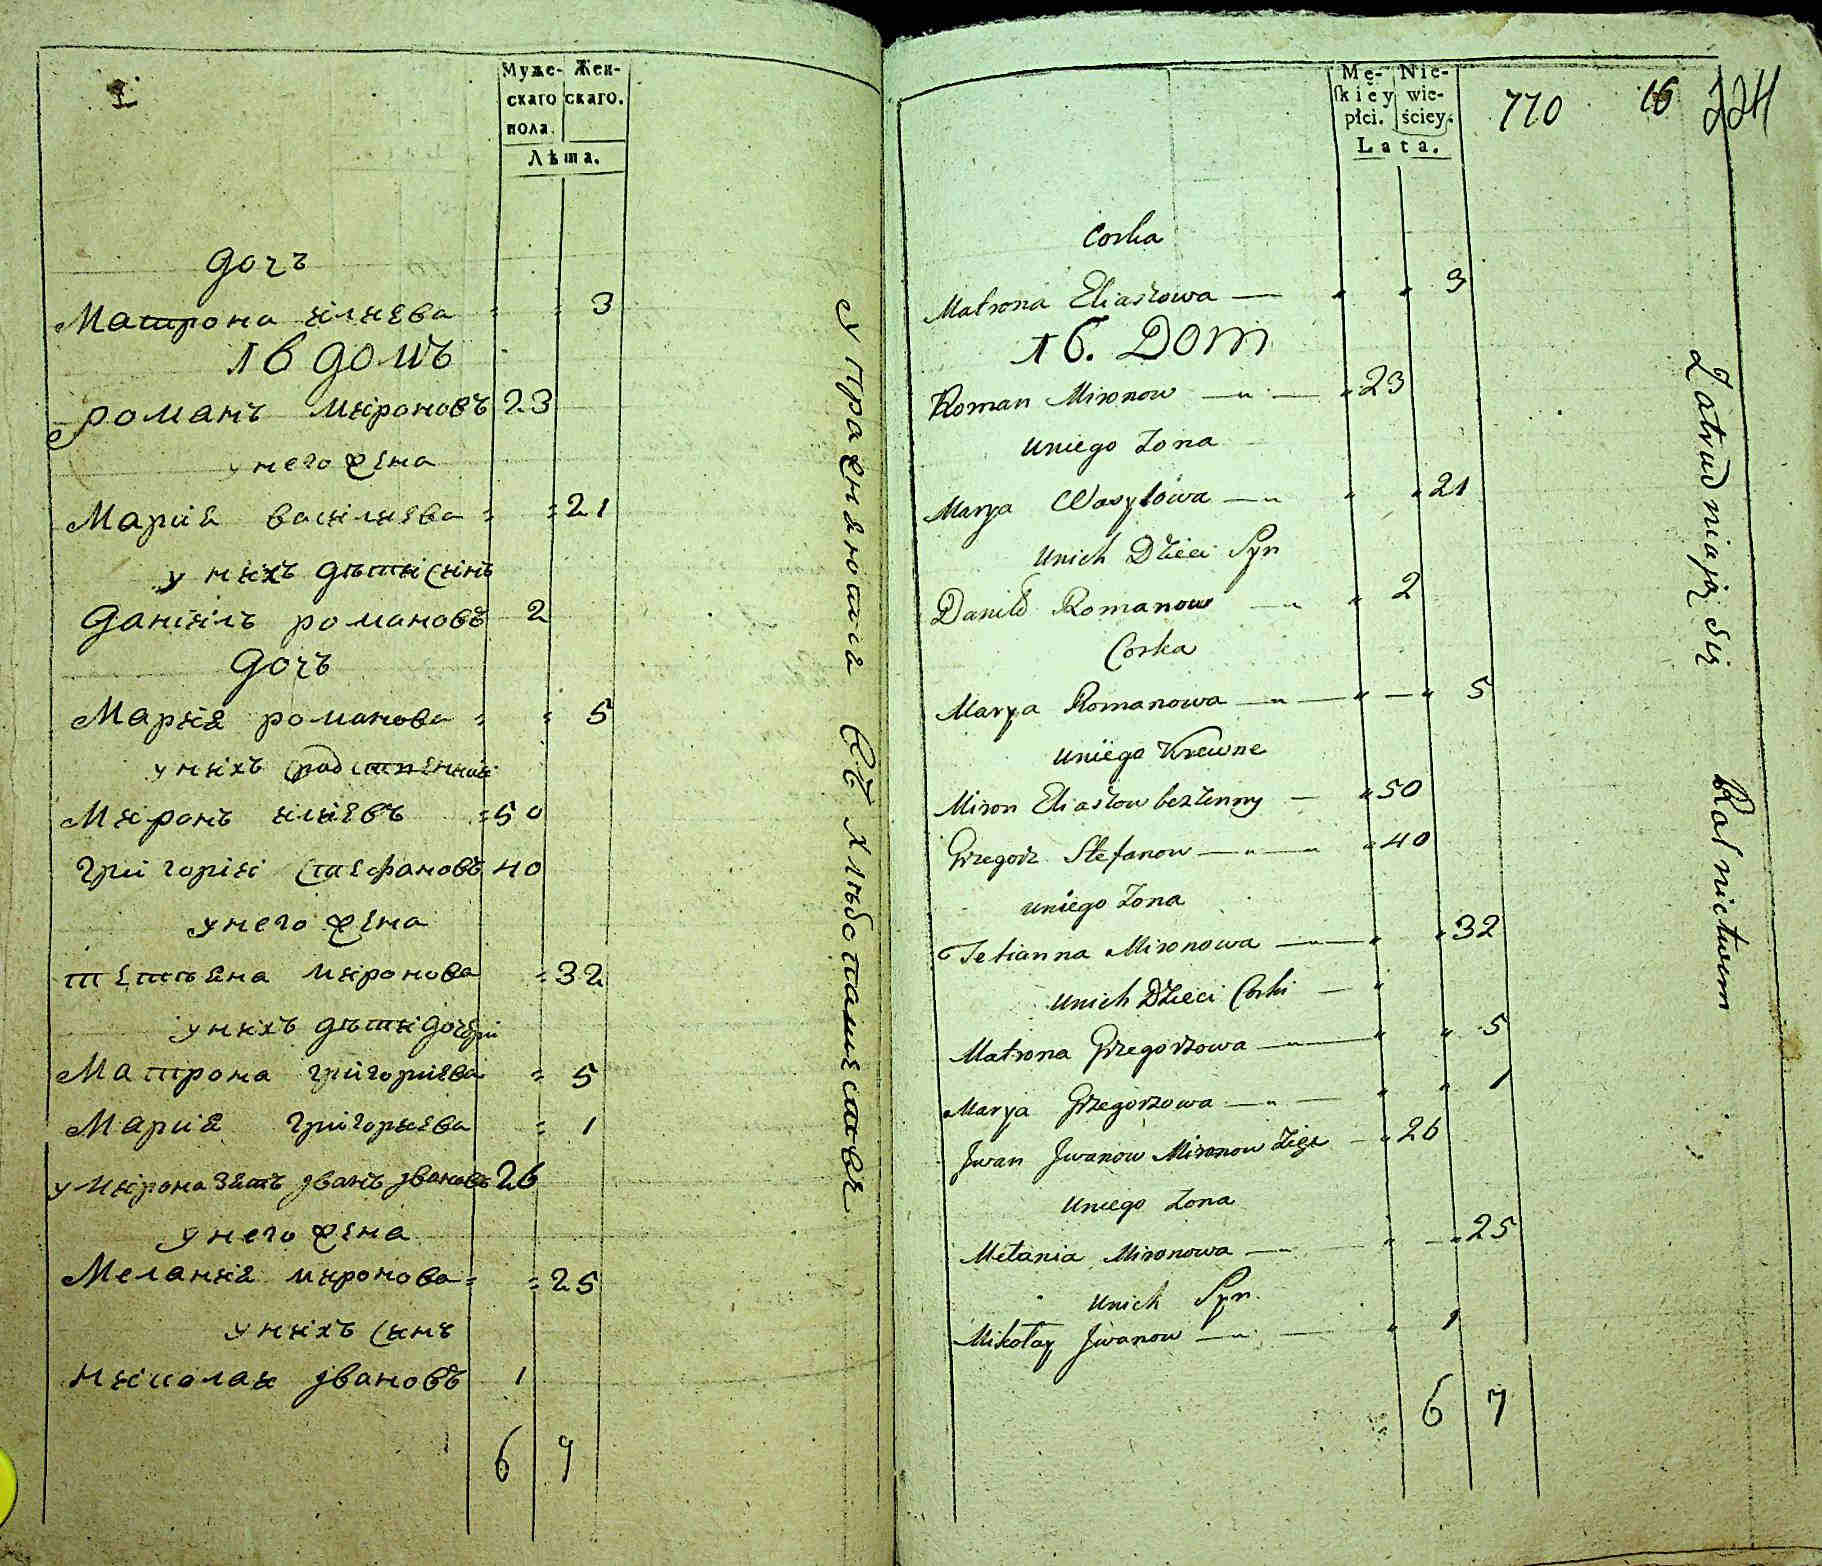 Муже- Жен-
скаго скаго.
пола.
Лѣта.
дочъ
Матрона илиева = = 3
16 домъ
романъ мироновъ 23
у него жена
Мария василиева = = 21
у нихъ дѣти сынъ
даниилъ романовъ 2
дочъ
Мария романова = = 5
у нихъ сродственники
Миронъ илиевъ = 50
григорий стефановъ 40
у него жена
тетьяна миронова = 32
у нихъ дѣти дочери
Матрона григориева = 5
Мария григориева = 1
у мирона зять јванъ јвановъ 26
у него жена
Мелания миронова = = 25
у нихъ сынъ
николай јвановъ 1
6 7
упражняются въ хлѣбопашествѣ
Mę- Nie-
skiey wie-
płci. ściey.
Lata.
770 16 224
Corka
Matrona Eliaszowa — 3
16. Dom
Roman Mironow — 23
uniego Żona
Marya Wasylowa — 21
unich Dzieci Syn
Daniło Romanow — 2
Corka
Marya Romanowa — 5
uniego Krewne
Miron Eliaszow bezżenny — 50
Grzegorz Stefanow — 40
uniego Żona
Tetianna Mironowa — 32
unich Dzieci Corki —
Matrona Grzegorzowa — 5
Marya Grzegorzowa — 1
Jwan Jwanow Mironow Zięć — 26
uniego Żona
Mełania Mironowa — 25
unich Syn
Mikołay Jwanow — 1
6 7
Zatrudniają się Rolnictwem